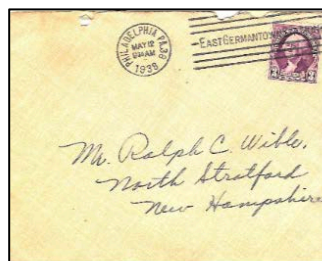 PHILADELPHIA PA.38
MAY 12
9 AM
1938
EAST GERMANTO
3 3
Mr. Ralph C. Wible,
North Stratford
New Hampshire